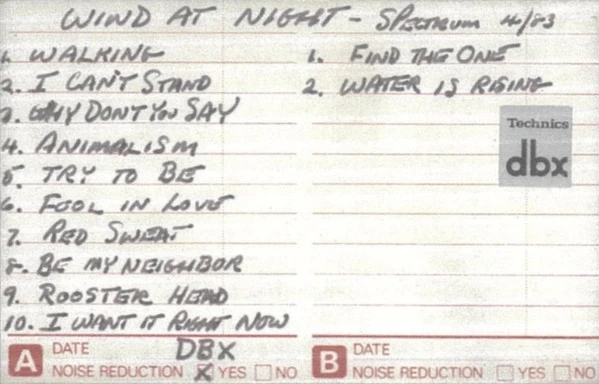 WIND AT NIGHT - SPECTRUM 4/83
1. WALKING
2. I CAN'T STAND
3. WHY DONT YOU SAY
4. ANIMALISM
5. TRY TO BE
6. FOOL IN LOVE
7. RED SWEAT
8. BE MY NEIGHBOR
9. ROOSTER HEAD
10. I WANT IT RIGHT NOW
1. FIND THE ONE
2. WATER IS RISING
Technics
dbx
A DATE DBX
NOISE REDUCTION X YES NO
B DATE
NOISE REDUCTION YES NO